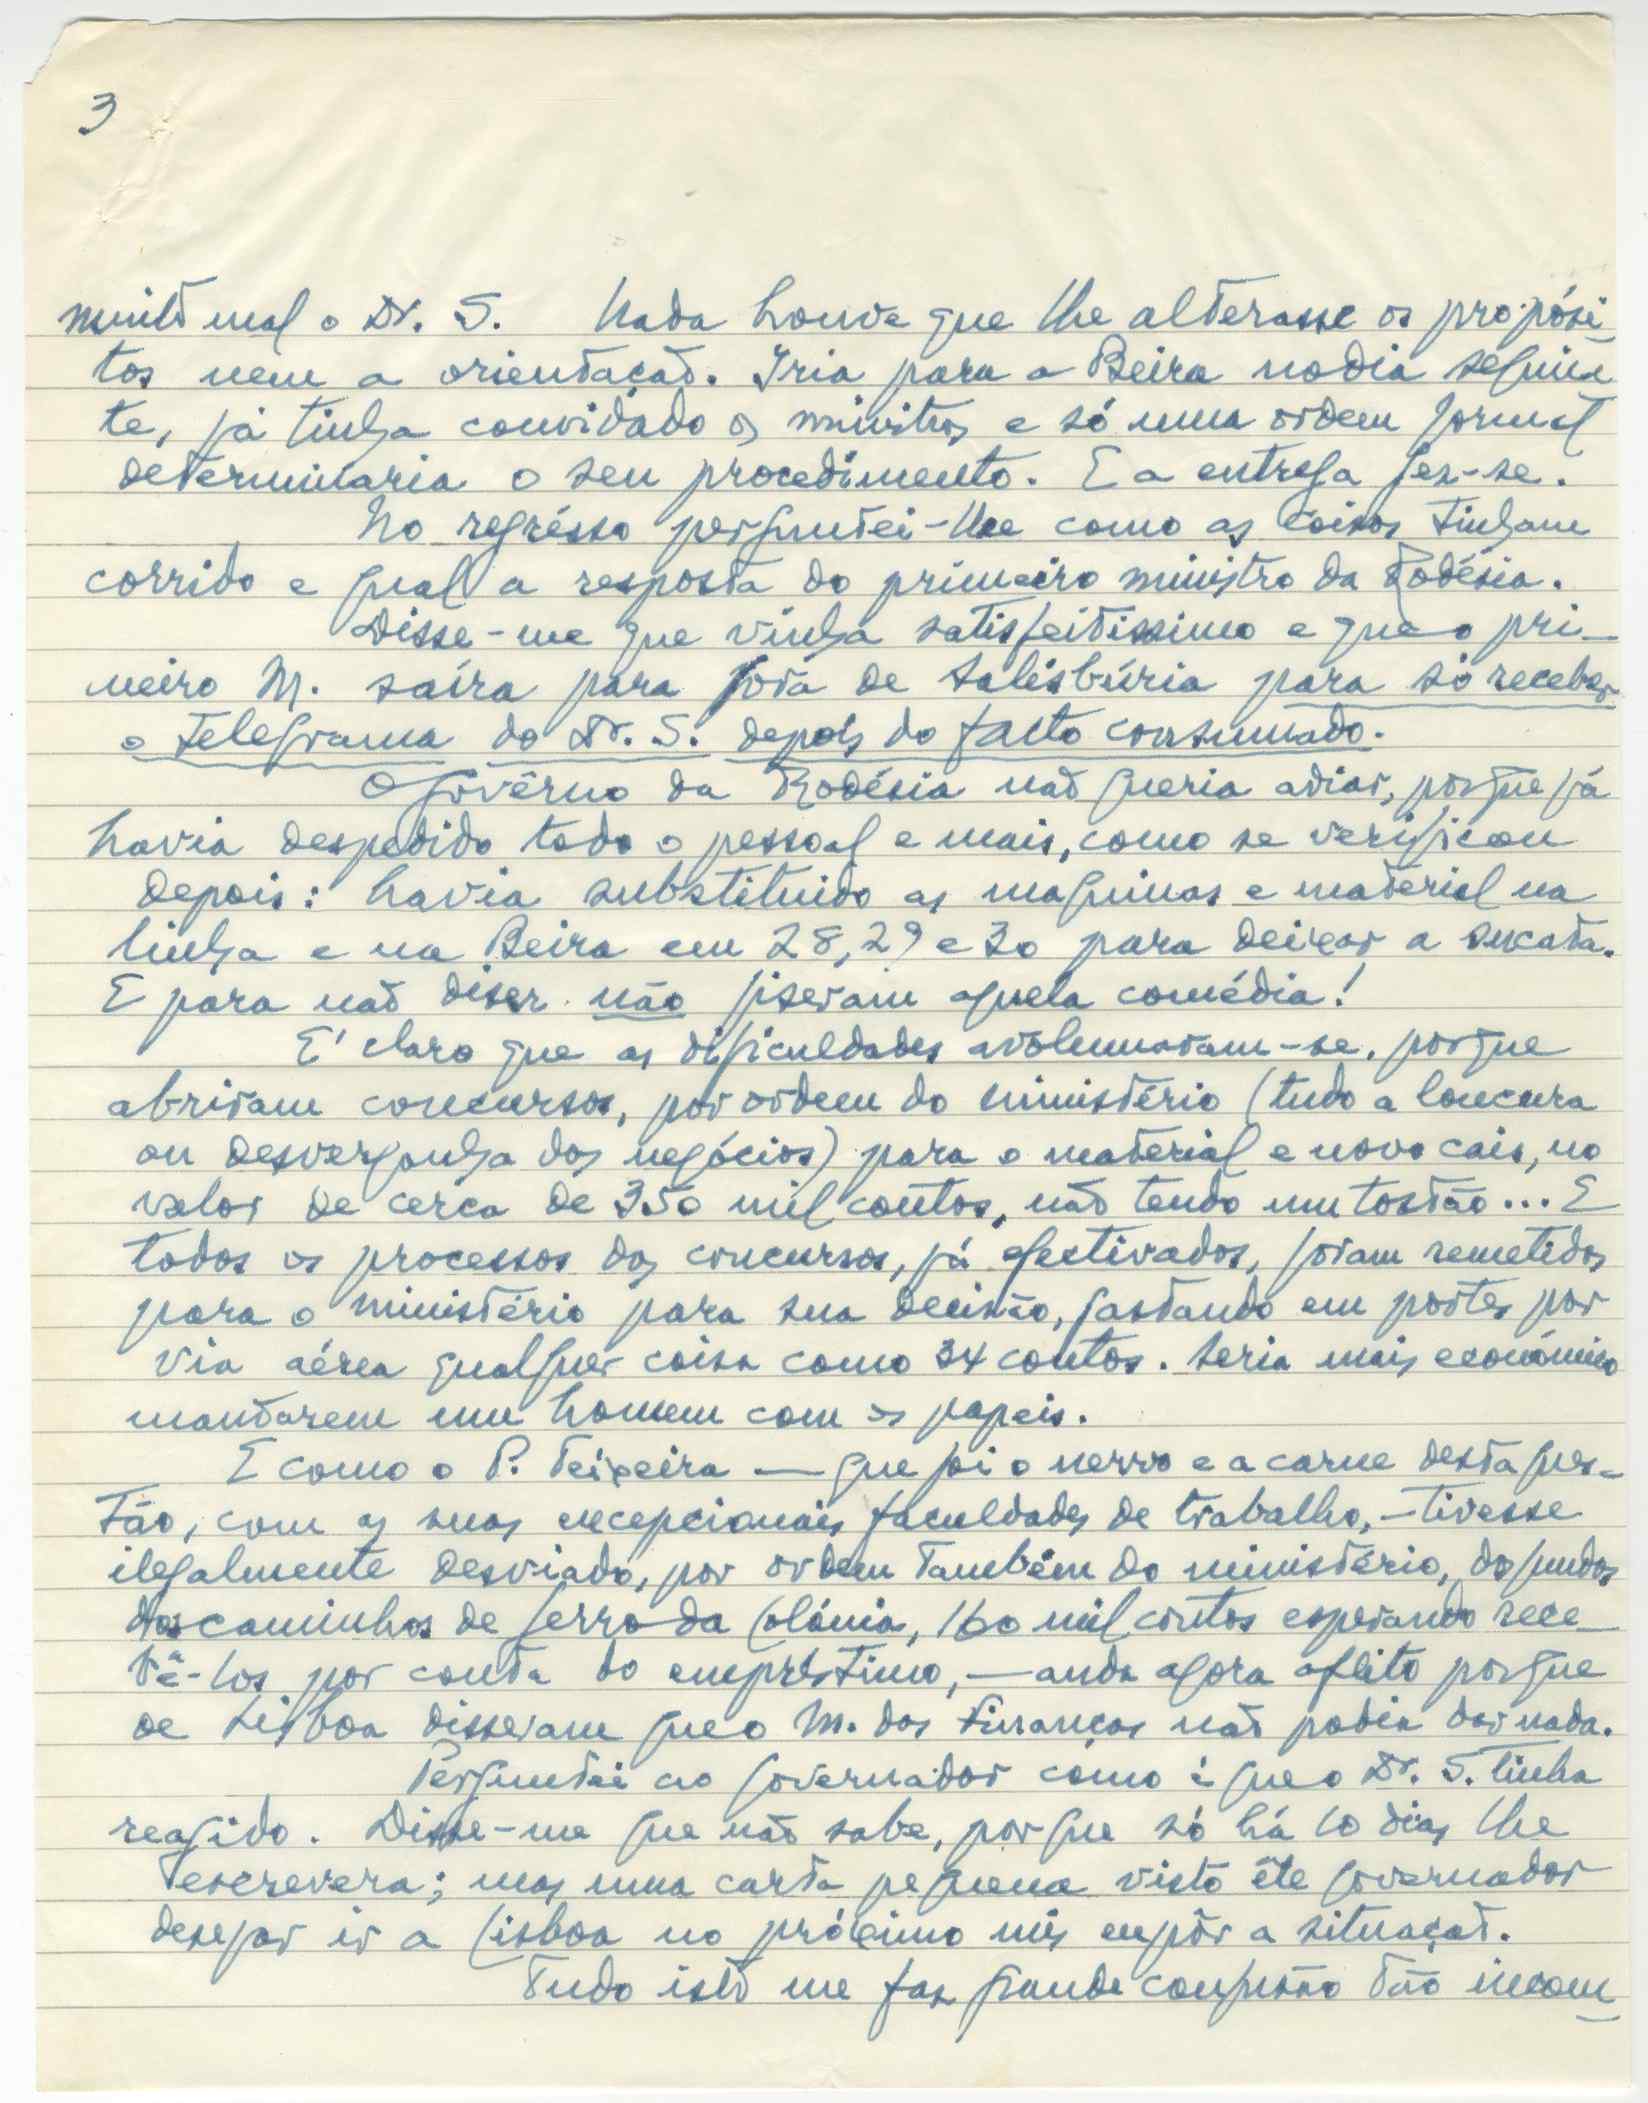 3
muito mal o Dr. S. Nada houve que lhe alterasse os propósi-
tos nem a orientação. Iria para a Beira no dia seguin-
te, já tinha convidado os ministros e só uma ordem formal
determinaria o seu procedimento. E a entrega fez-se.
No regrésso perguntei-lhe como as coisas tinham
corrido e qual a resposta do primeiro ministro da Rodésia.
Disse-me que vinha satisfeitissimo e que o pri-
meiro M. saíra para fora de Salisbúria para só receber
o telegrama do Dr. S. depois do facto consumado.
O govêrno da Rodésia não queria adiar, porque já
havia despedido todo o pessoal e mais, como se verificou
depois: havia substituido as maquinas e material na
linha e na Beira em 28, 29 e 30 para deixar a sucata.
E para não dizer não fizeram aquela comédia!
E' claro que as dificuldades avolumaram-se, porque
abriram concursos, por ordem do ministério (tudo a loucura
ou desvergonha dos negócios) para o material e novo cais, no
valor de cerca de 350 mil contos, não tendo um tostão... E
todos os processos dos concursos, já efectivados, foram remetidos
para o ministério para sua decisão, gastando em portes por
via aérea qualquer coisa como 34 contos. Seria mais económico
mandarem um homem com os papeis.
E como o P. Teixeira — que foi o nervo e a carne desta ques-
tão, com as suas excepcionais faculdades de trabalho, — tivesse
ilegalmente desviado, por ordem também do ministério, dos fundos
dos caminhos de ferro da Colónia, 160 mil contos esperando rece-
bê-los por conta do empréstimo, — anda agora aflito porque
de Lisboa disseram que o M. das Finanças não podia dar nada.
Perguntei ao governador como é que o Dr. S. tinha
reagido. Disse-me que não sabe, porque só há 10 dias lhe
escrevera; mas uma carta pequena visto êle governador
desejar ir a Lisboa no próximo mês expôr a situação.
Tudo isto me faz grande confusão tão incom-